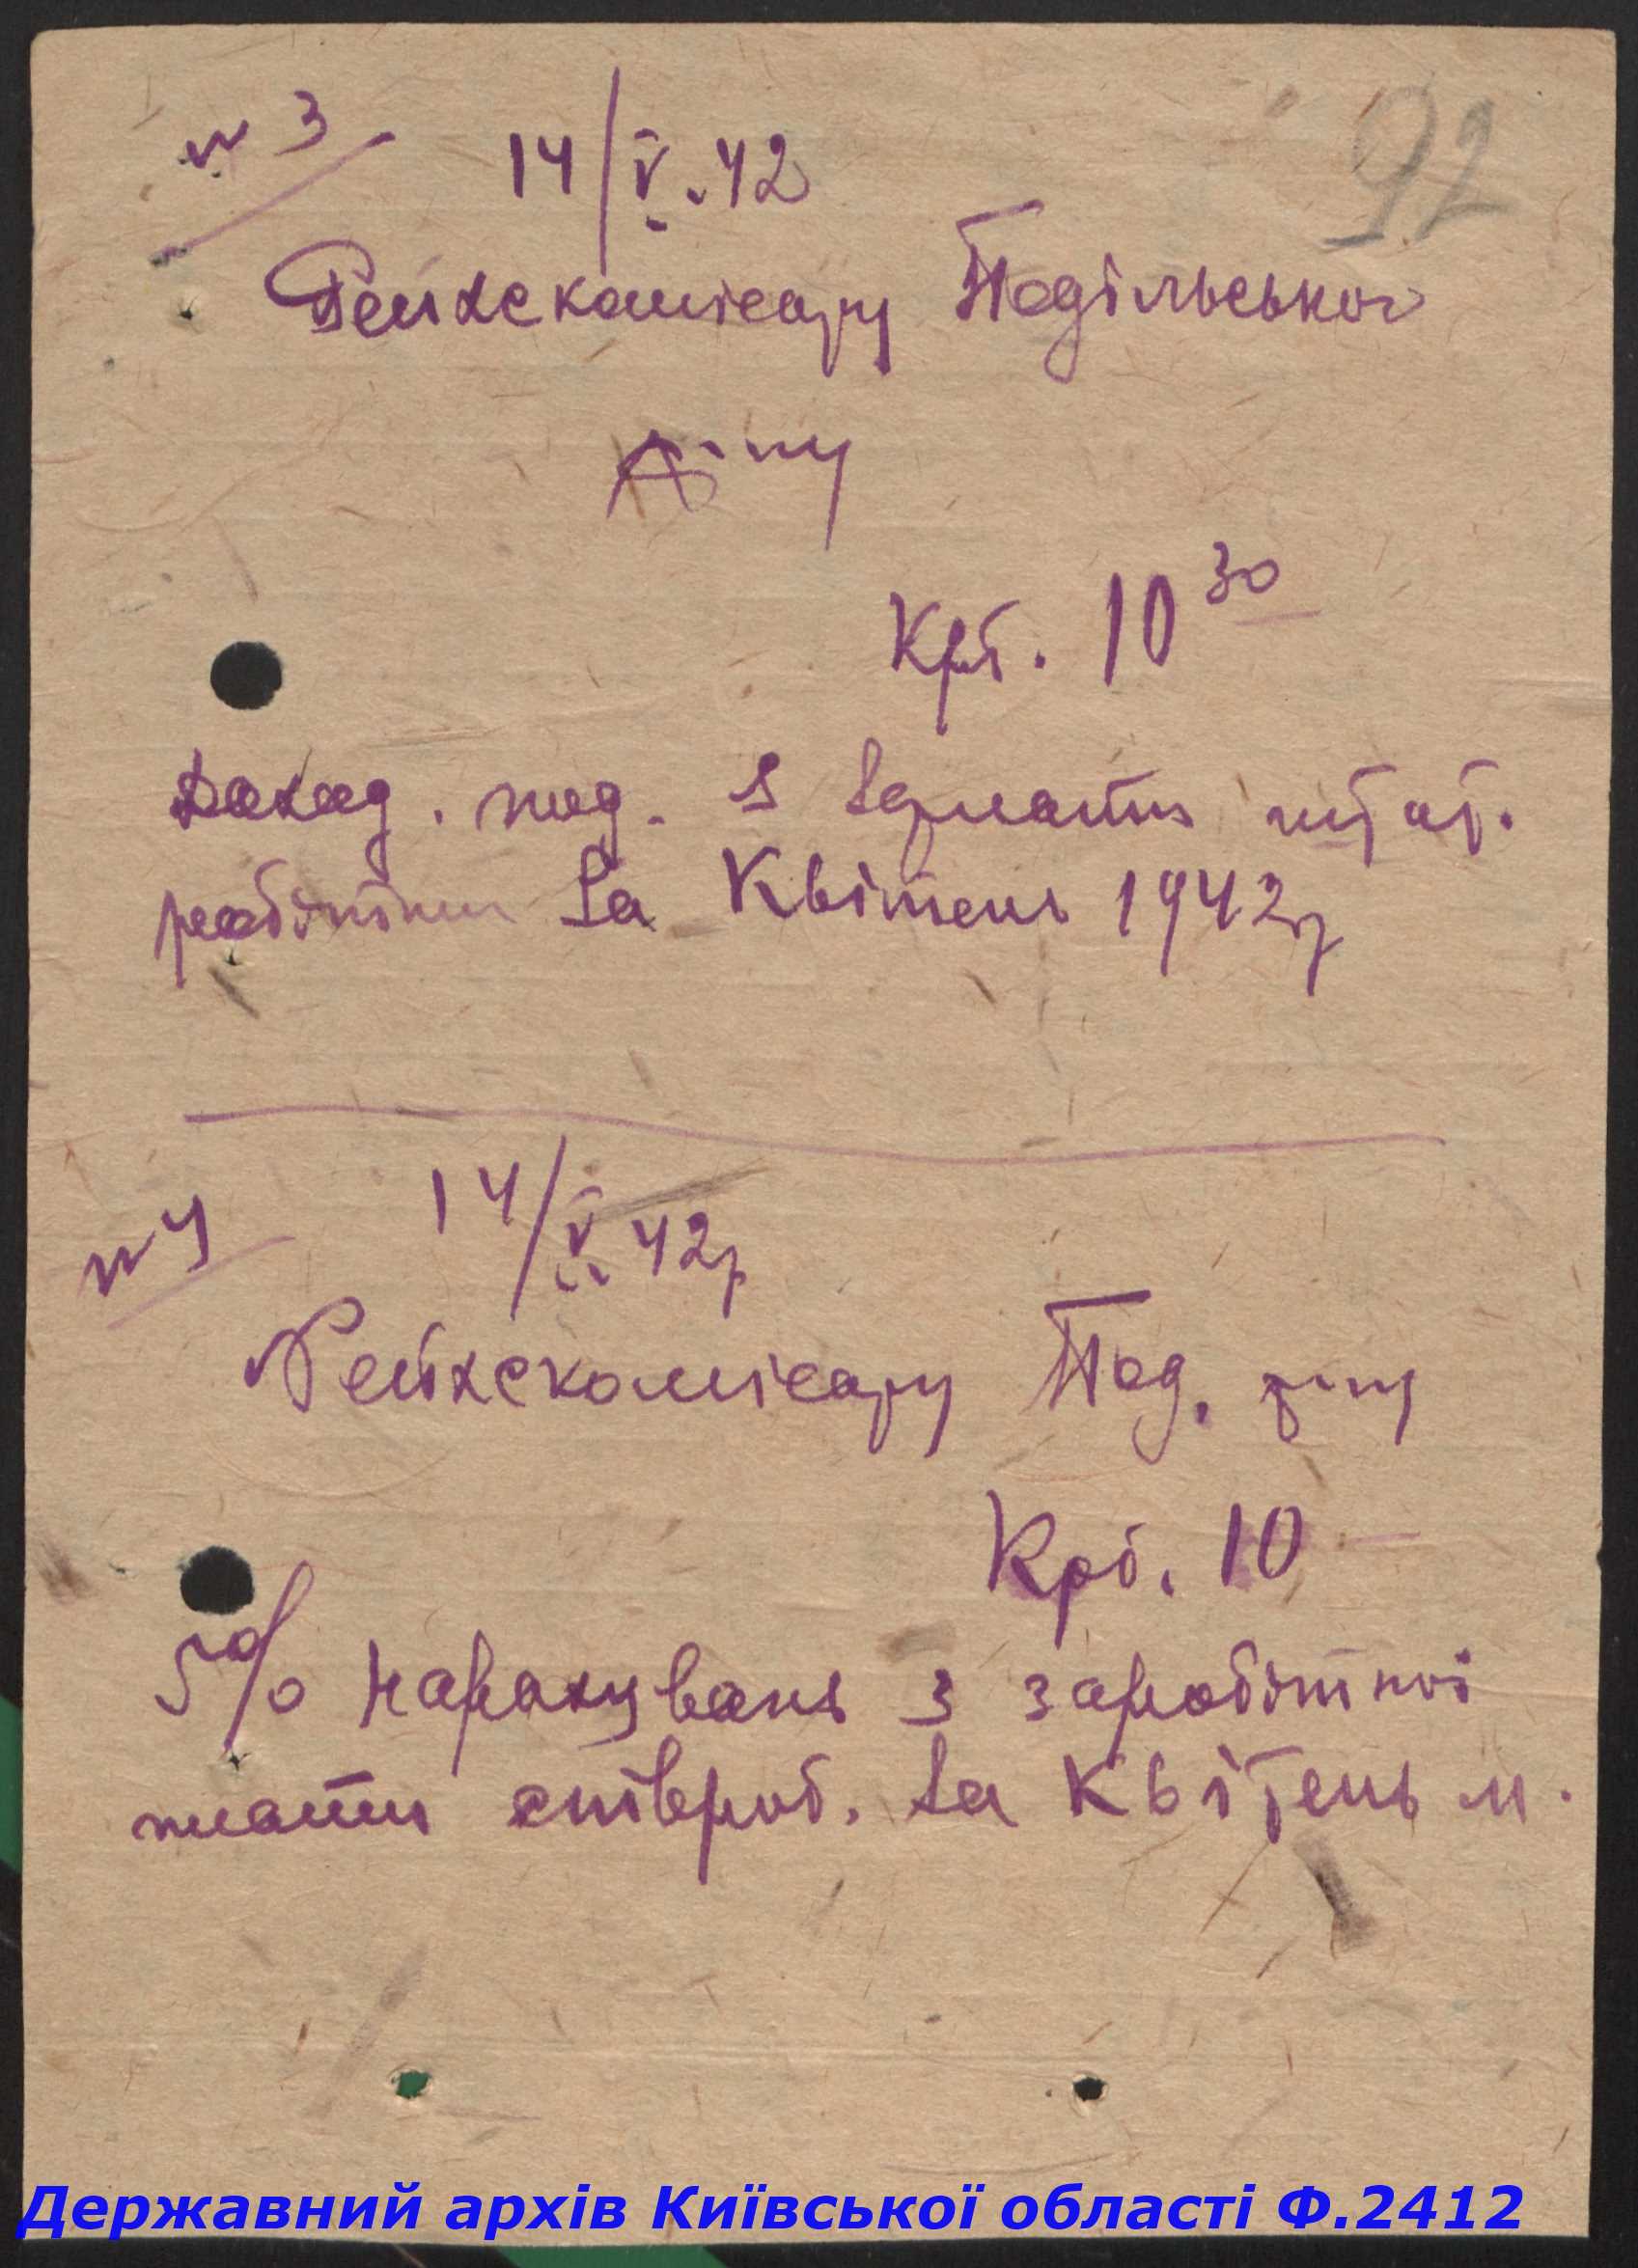 92
№ 3 14/V.42
Рейхскомісару Подільськог
р-ну
Крб. 10 30
Доход. под. з зарплати штат.
робітник за Квітень 1942р
№ 4 14/V 42р
Рейхскомісару Под. р-ну
Крб. 10 —
5% нарахувань з заробітної
платні співроб. за Квітень м.
Державний архів Київської області Ф.2412